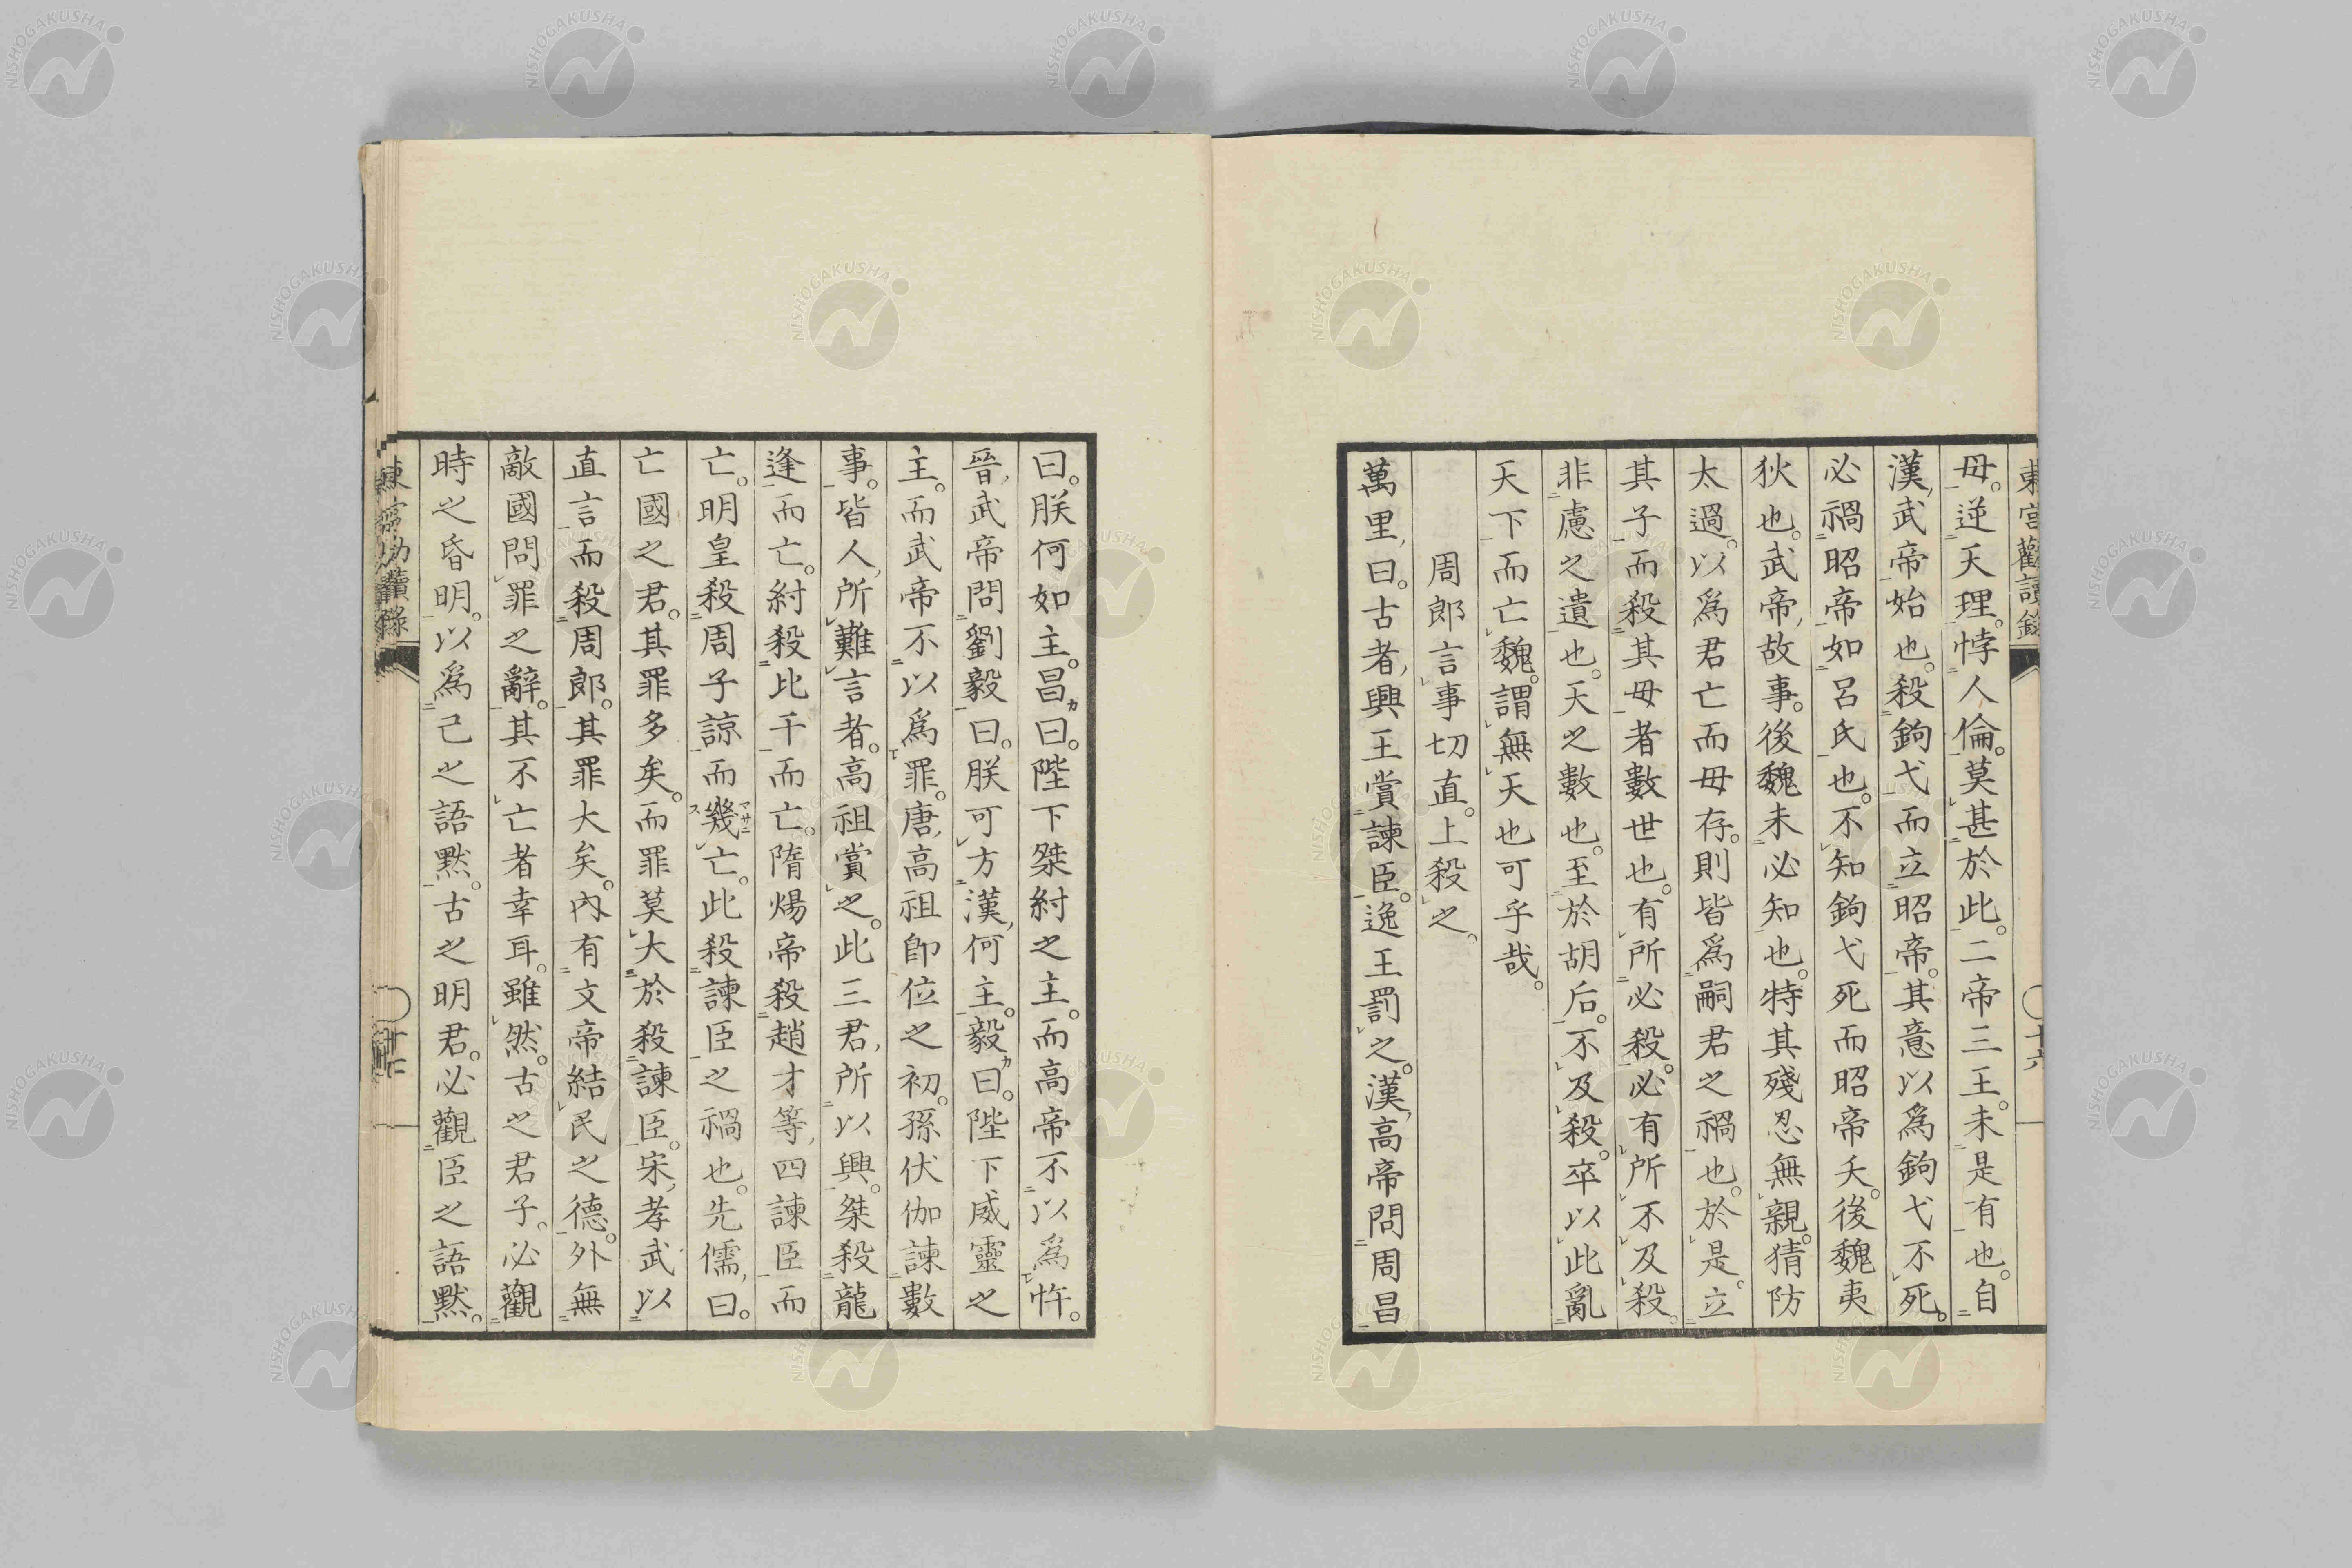 東宮勸讀錄
十六
母。逆天理。悖人倫。莫甚於此。二帝三王。未是有也。自
漢武帝始也。殺鉤弋而立昭帝。其意以爲鉤弋不死。
必禍昭帝如呂氏也。不知鉤弋死而昭帝夭。後魏夷
狄也。武帝故事。後魏未必知也。特其殘忍無親。猜防
太過。以爲君亡而母存。則皆爲嗣君之禍也。於是。立
其子而殺其母者數世也。有所必殺。必有所不及殺。
非慮之遺也。天之數也。至於胡后。不及殺。卒以此亂
天下而亡魏。謂無天也可乎哉。
周郎言事切直。上殺之。
萬里曰。古者興王賞諫臣。逸王罰之。漢高帝問周昌
曰。朕何如主。昌曰。陛下桀紂之主。而高帝不以爲忤。
晉武帝問劉毅曰。朕可方漢何主。毅曰。陛下威靈之
主。而武帝不以爲罪。唐高祖卽位之初。孫伏伽諫數
事。皆人所難言者。高祖賞之。此三君所以興。桀殺龍
逢而亡。紂殺比干而亡。隋煬帝殺趙才等四諫臣而
亡。明皇殺周子諒而幾亡。此殺諫臣之禍也。先儒曰。
亡國之君。其罪多矣。而罪莫大於殺諫臣。宋孝武以
直言而殺周郎。其罪大矣。內有文帝結民之德。外無
敵國問罪之辭。其不亡者幸耳。雖然。古之君子。必觀
時之昏明。以爲己之語默。古之明君。必觀臣之語默。